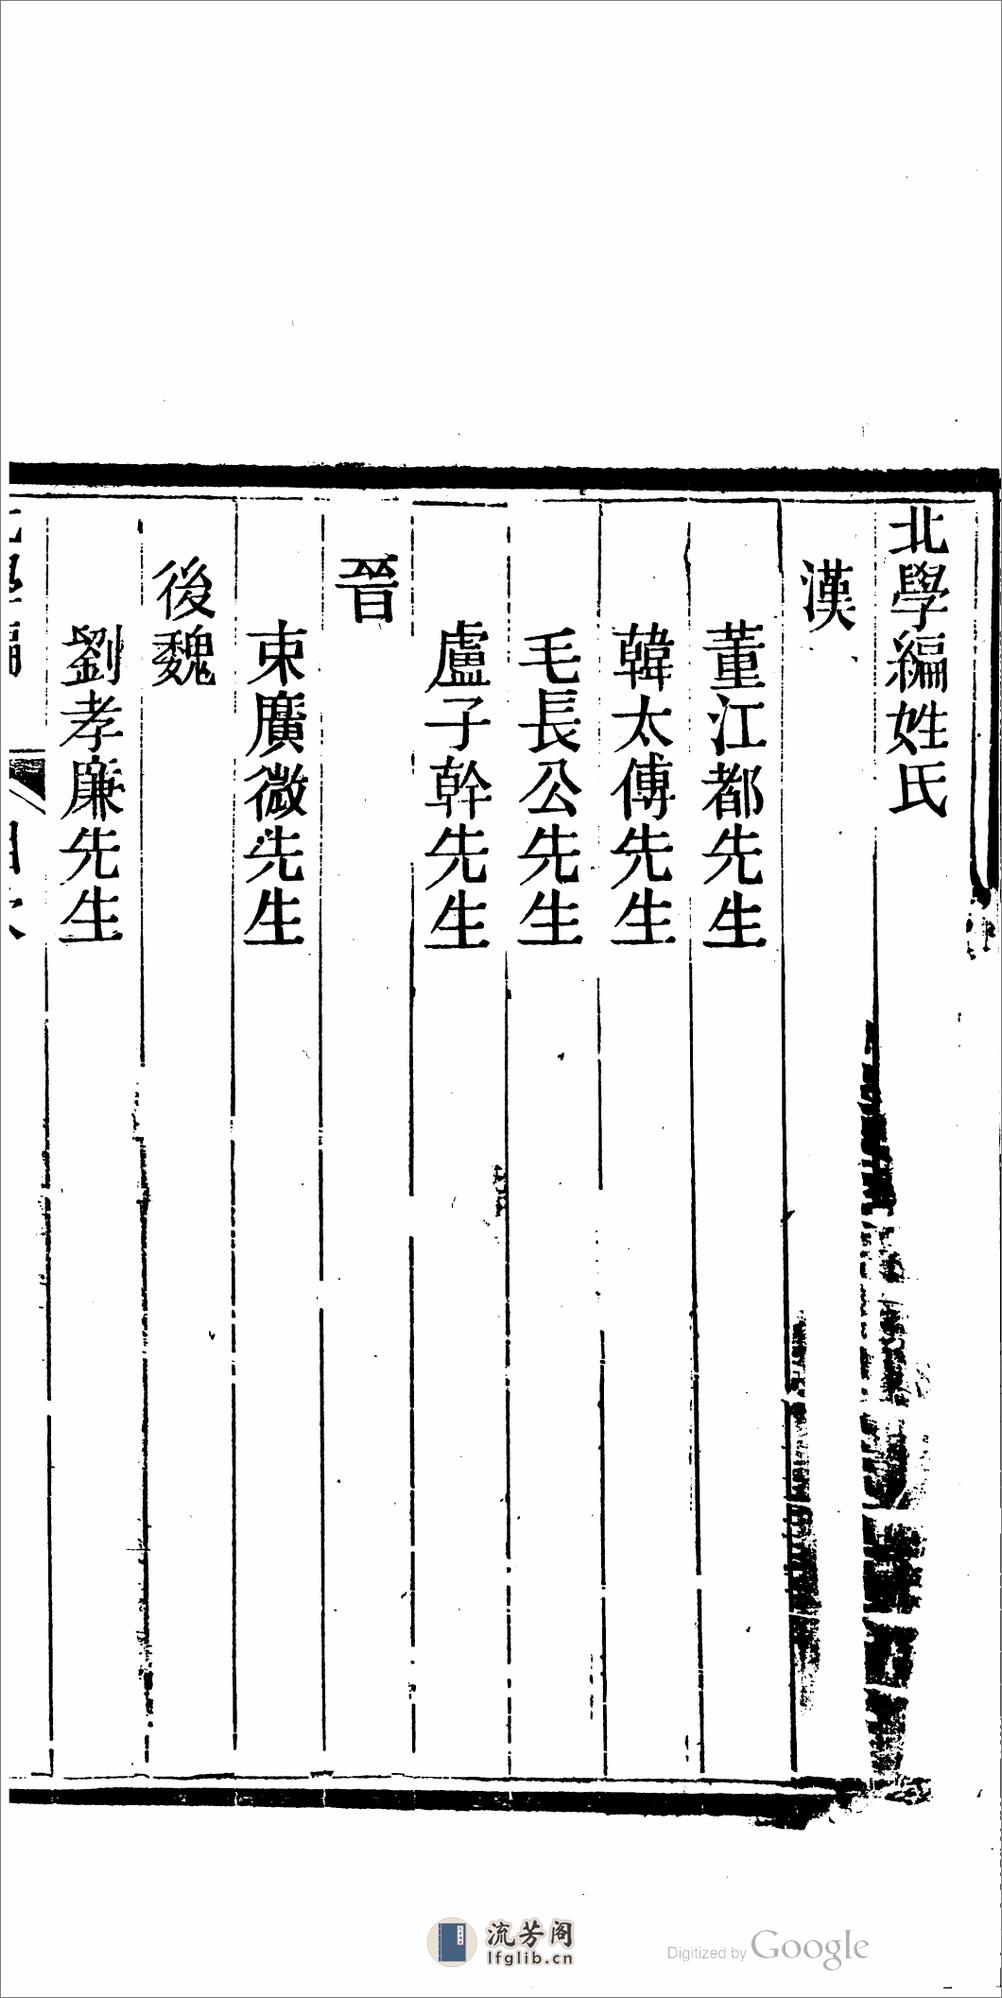 北學編姓氏
漢
董江都先生
韓太傅先生
毛長公先生
盧子幹先生
晉
束廣微先生
後魏
劉孝廉先生
流芳阁
lfglib.cn
Digitized by Google